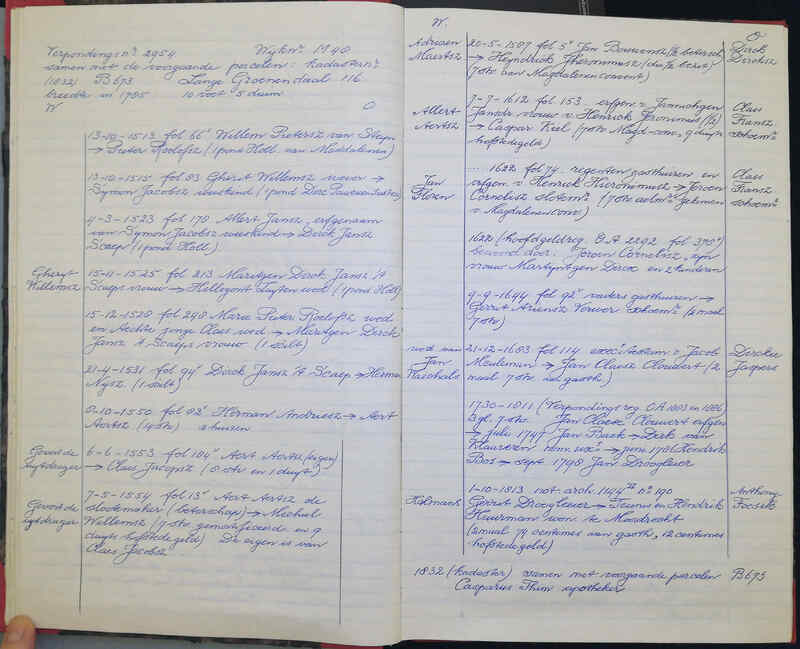 Verpondingsno 2954 Wijkno M 90
samen met de voorgaande percelen: kadasterno
(1832) B 673 Lange Groenendaal 116
breedte in 1785 10 voet 5 duim
W O
13-10-1513 fol 66v Willem Pietersz van
→ Pieter Roelofsz (1 pond Holl. van Magdalenen)
13-10-1515 fol 83 Ghert Willemsz wever →
Symon Jacobsz (1 pond Dirc
4-3-1523 fol 170 Allert Jansz, erfgenaam
van Symon Jacobsz → Dirck Jansz
Scaep (1 pond Holl.)
Gheryt
Willemsz
15-11-1525 fol 213 Maritgen Dirck Jansz 't
Scaeps vrouw → Hillegont wed (1 pond Holl)
15-12-1528 fol 248 Marie Pieter Roelofsz wed
en Aechte jonge Claes wed → Maritgen Dirck
Jansz 't Scaeps vrouw (1 scilt)
21-4-1531 fol 94v Dirck Jansz 't Scaep → Herman
(1 scilt)
8-10-1550 fol 92v Herman Andriesz → Aert
Aertsz (4 str) 2 huizen
Govert de
6-6-1553 fol 184v Aert Aertsz (eigen)
→ Claes Jacopsz (8 str en 1 duyt)
Govert de
7-5-1554 fol 13v Aert Aertsz de
slootemaker (beterschap) → Michiel
Willemsz (7 str gemortificeerde en 9
duyts hofstedegeld) De eigen is van
Claes Jacobsz
W. O
Adriaen
Maertsz
20-5-1587 fol 5v Jan Bouwensz (1/2 betersch)
→ Heyndrick Jheronimusz (die 1/2 heeft)
7 str van Magdalenenconvent)
Dirck
Dircksz
Allert
Aertsz
7-7-1612 fol 153 erfgen v Jannichgen
Jansdr vrouw v Henrick Jeronimus (1/2)
→ Caspar Kiel (7 str Magd. conv, 9 duyts
hofstedegeld)
Claes
Fransz
schoenmr
Jan
Floren
... 1622 fol 74 regenten gasthuizen en
erfgen. v Henrick Hieronimusz → Jeroen
Cornelisz slotemr (7 str
v Magdalenenconv)
Claes
Fransz
schoenmr
1622 (hoofdgeldreg. OA 2292 fol 370v)
bewoond door: Jeroen Cornelisz, zijn
vrouw Martijntgen Dircx en 2 kinderen
9-9-1644 fol 92v vaders gasthuizen →
Gerrit Ariensz schoenmr (2 maal
7 str)
wed van
Jan
Michiels
21-12-1683 fol 114 v Jacob
Meuleman → Jan Claesz Cloudert (2
maal 7 str aan gasth)
Dirckie
Jaspers
1730-1811 (Verpondingsreg. OA 1883 en 1886)
3 gl. 7 str. Jan Claesz Clouwert erfgen
→ juli 1747 Jan Back → Dirk van
Klaveren nom. ux. → juni 1781 Hendrik
Bos → sept 1798 Jan Droogleuer
Kalmach
1-10-1813 not arch. 1144 II no 190
Gerrit Droogleuer → Teunis en Hendrik
Huurman won. te Moordrecht
(2 maal 74 centimes aan gasth, 12 centimes
hofstedegeld)
Anthony
1832 (kadaster) samen met voorgaande percelen B 673
Casparus Thim apotheker